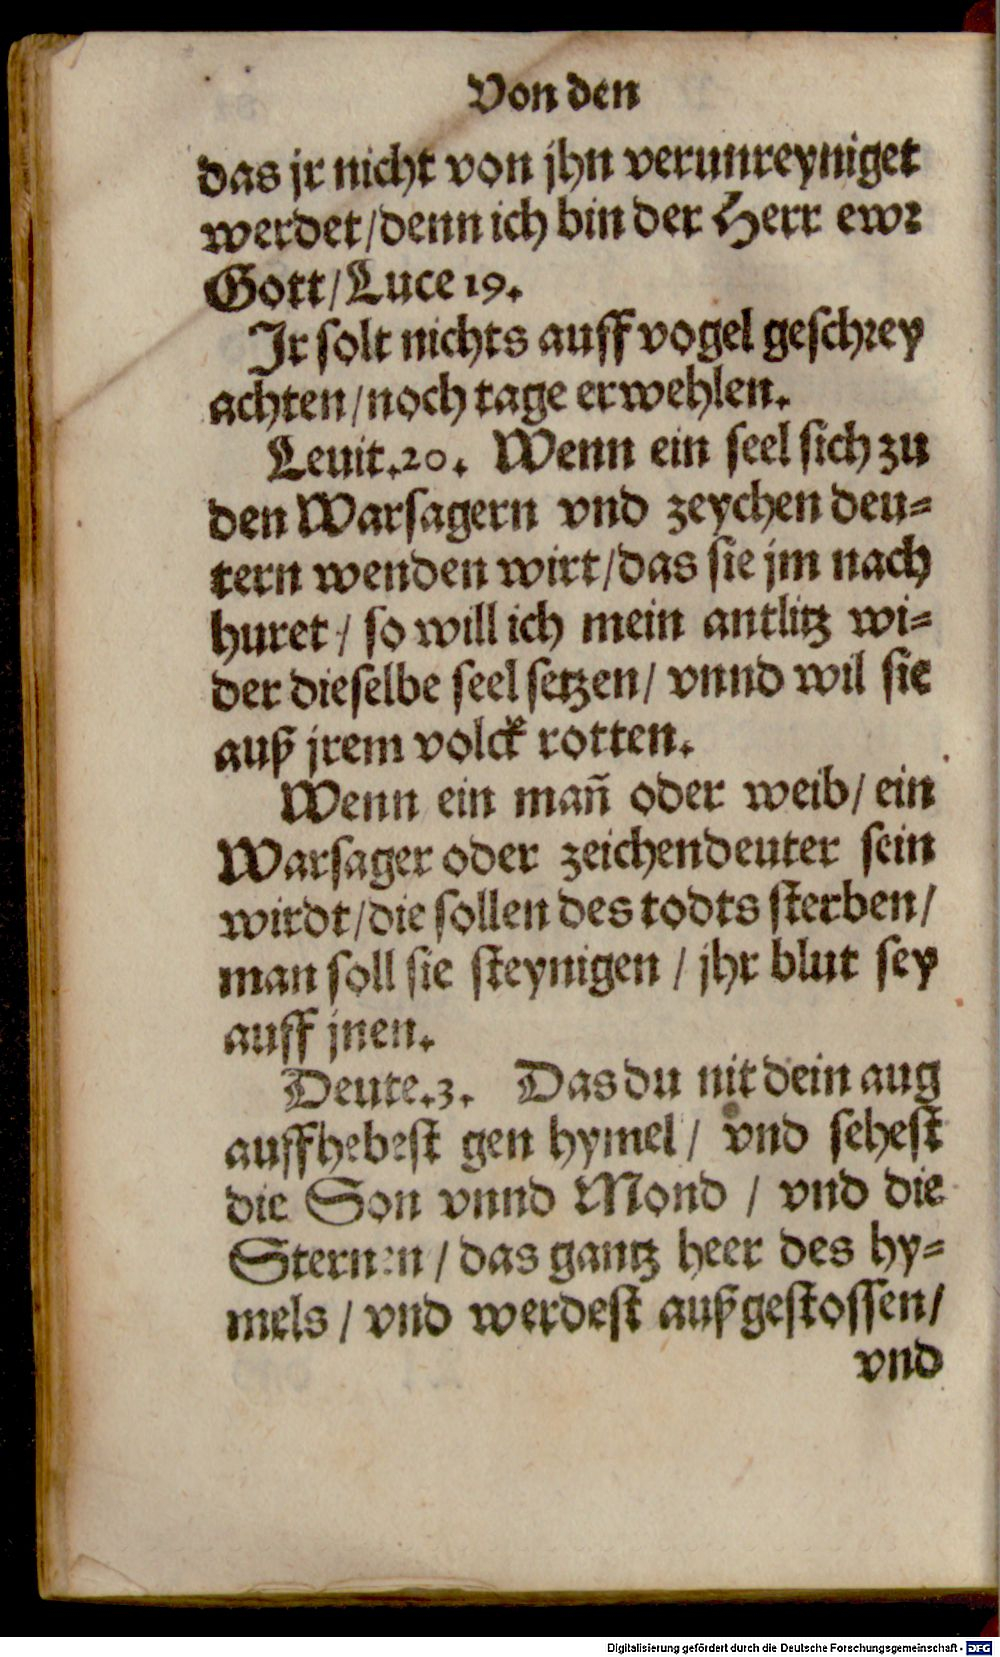 Von den
das jr nicht von jhn verunreyniget
werdet/denn ich bin der Herr ewr
Gott/Luce 19.
Jr solt nichts auff vogel geschrey
achten/noch tage erwehlen.
Leuit.20. Wenn ein seel sich zu
den Warsagern vnd zeychen deu=
tern wenden wirt/das sie jm nach
huret/ so will ich mein antlitz wi=
der dieselbe seel setzen/ vnnd wil sie
auß jrem volck rotten.
Wenn ein mañ oder weib/ ein
Warsager oder zeichendeuter sein
wirdt/die sollen des todts sterben/
man soll sie steynigen / jhr blut sey
auff jnen.
Deute.3. Das du nit dein aug
auffhebest gen hymel/ vnd sehest
die Son vnnd Mond / vnd die
Sternen/ das gantz heer des hy=
mels / vnd werdest außgestossen/
vnd
Digitalisierung gefördert durch die Deutsche Forschungsgemeinschaft - DFG